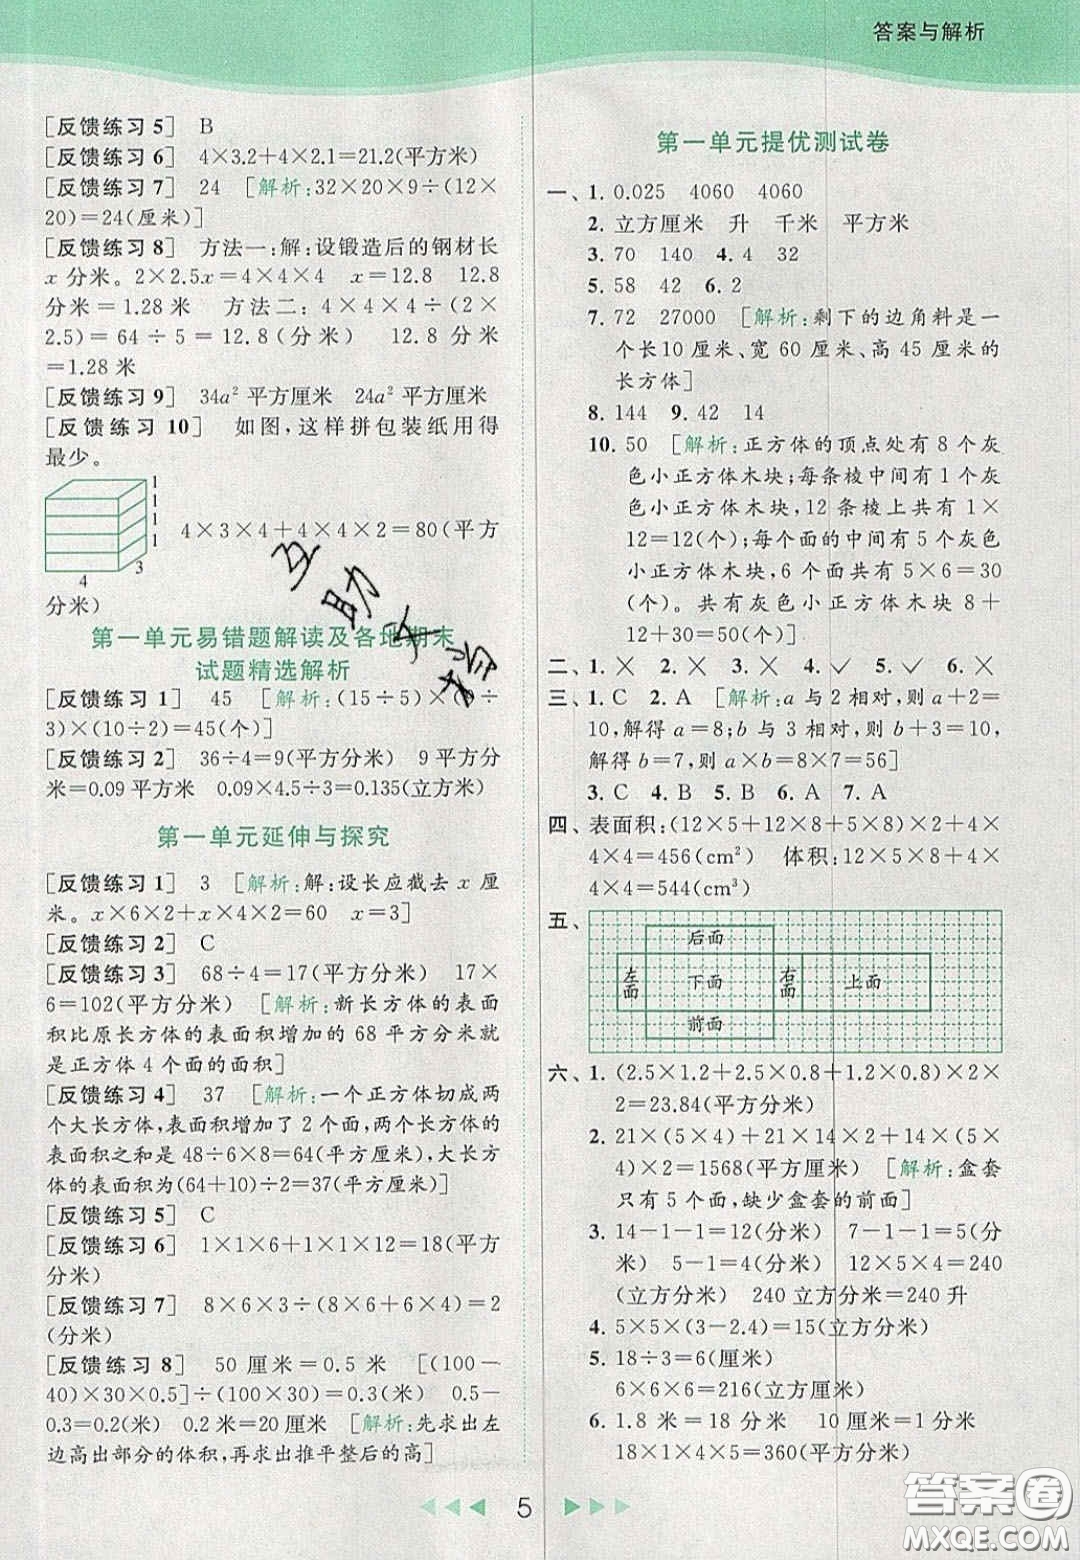 答案与解析
[反馈练习5] B
[反馈练习6] 4×3.2+4×2.1=21.2(平方米)
[反馈练习7] 24 [解析:32×20×9÷(12×
20)=24(厘米)]
[反馈练习8] 方法一:解:设锻造后的钢材长
x 分米。2×2.5x=4×4×4 x=12.8 12.8
分米=1.28 米 方法二:4×4×4÷(2×
2.5)=64÷5=12.8(分米) 12.8 分米
=1.28 米
[反馈练习9] 34a² 平方厘米 24a² 平方厘米
[反馈练习10] 如图,这样拼包装纸用得
最少。
1
1
1
4
3
4×3×4+4×4×2=80(平方
分米)
第一单元易错题解读及各地期末
试题精选解析
[反馈练习1] 45 [解析:(15÷5)×(9÷
3)×(10÷2)=45(个)]
[反馈练习2] 36÷4=9(平方分米) 9 平方分
米=0.09 平方米 0.09×4.5÷3=0.135(立方米)
第一单元延伸与探究
[反馈练习1] 3 [解析:解:设长应截去 x 厘
米。x×6×2+x×4×2=60 x=3]
[反馈练习2] C
[反馈练习3] 68÷4=17(平方分米) 17×
6=102(平方分米) [解析:新长方体的表面
积比原长方体的表面积增加的 68 平方分米就
是正方体 4 个面的面积]
[反馈练习4] 37 [解析:一个正方体切成两
个大长方体,表面积增加了 2 个面,两个长方体的
表面积之和是 48÷6×8=64(平方厘米),大长方
体的表面积为(64+10)÷2=37(平方厘米)]
[反馈练习5] C
[反馈练习6] 1×1×6+1×1×12=18(平方
分米)
[反馈练习7] 8×6×3÷(8×6+6×6)=2
(分米)
[反馈练习8] 50 厘米=0.5 米 [(100-
40)×30×0.5]÷(100×30)=0.3(米) 0.5-
0.3=0.2(米) 0.2 米=20 厘米 [解析:先求出左
边高出部分的体积,再求出推平整后的高]
第一单元提优测试卷
一、1. 0.025 4060 4060
2. 立方厘米 升 千米 平方米
3. 70 140 4. 4 32
5. 58 42 6. 2
7. 72 27000 [解析:剩下的边角料是一
个长10 厘米、宽 60 厘米、高 45 厘米的
长方体]
8. 144 9. 42 14
10. 50 [解析:正方体的顶点处有 8 个灰
色小正方体木块;每条棱中间有 1 个灰
色小正方体木块,12 条棱上共有 1×
12=12(个);每个面的中间有 5 个灰色
小正方体木块,6 个面共有 5×6=30
(个)。共有灰色小正方体木块 8+
12+30=50(个)]
二、1. × 2. × 3. × 4. ✓ 5. ✓ 6. ×
三、1. C 2. A [解析:a 与 2 相对,则 a+2=
10,解得 a=8;b 与 3 相对,则 b+3=10,
解得 b=7,则 a×b=8×7=56]
3. C 4. B 5. B 6. A 7. A
四、表面积:(12×5+12×8+5×8)×2+4×
4×4=456(cm²) 体积:12×5×8+4×
4×4=544(cm³)
五、
后面
左面 下面 右面 上面
前面
六、1. (2.5×1.2+2.5×0.8+1.2×0.8)×2×
2=23.84(平方分米)
2. 21×(5×4)+21×14×2+14×(5×
4)×2=1568(平方厘米) [解析:盒套
只有 5 个面,缺少盒套的前面]
3. 14-1-1=12(分米) 7-1-1=5(分
米) 5-1=4(分米) 12×5×4=240
(立方分米) 240 立方分米=240 升
4. 5×5×(3-2.4)=15(立方分米)
5. 18÷3=6(厘米)
6×6×6=216(立方厘米)
6. 1.8 米=18 分米 10 厘米=1 分米
18×1×4×5=360(平方分米)
5
答案圈
MXQE.COM